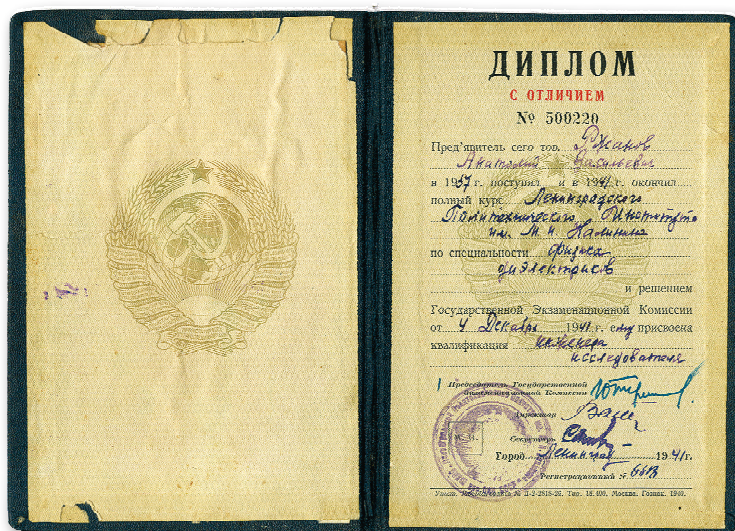 ДИПЛОМ
С ОТЛИЧИЕМ
№ 500220
Пред'явитель сего тов. Ржанов
Анатолий Васильевич
в 1937 г. поступил и в 1941 г. окончил
полный курс Ленинградского
Политехнического Института
им. М. И. Калинина
по специальности физика
диэлектриков
и решением
Государственной Экзаменационной Комиссии
от 4 Декабря 1941 г. ему присвоена
квалификация инженера
исследователя
Председатель Государственной
Экзаменационной Комиссии
Директор
Секретарь
Город Ленинград 1941 г.
Регистрационный №
Москва. Гознак. 1940.